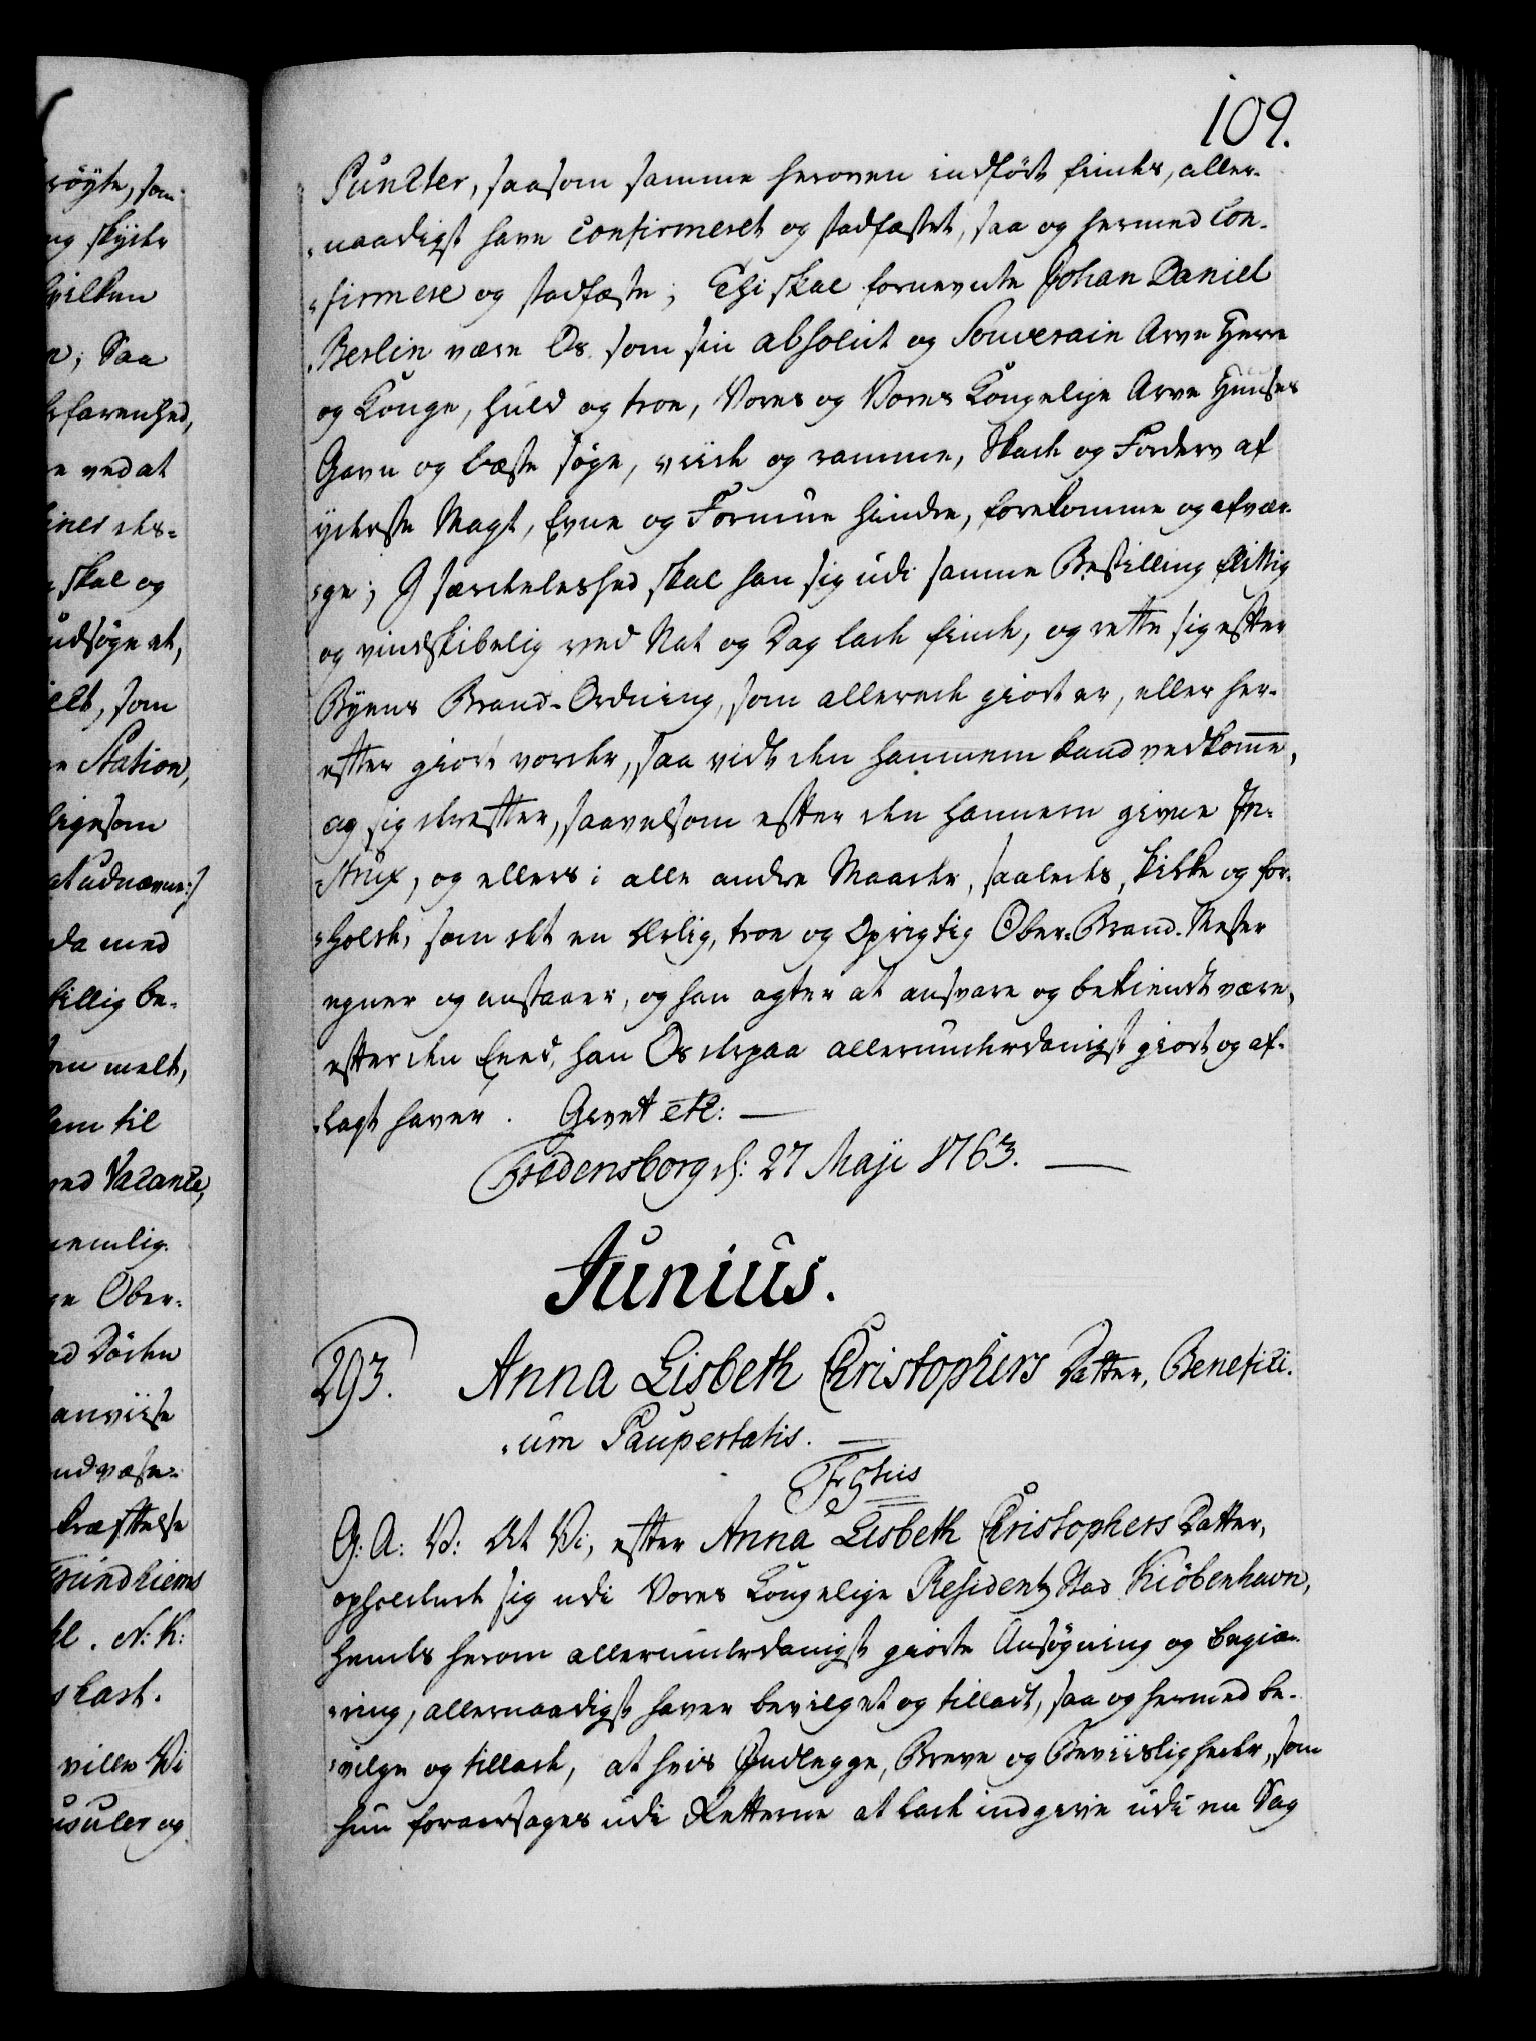 109.
Puncter, saasom samme heroven indført findes, aller-
naadigst have confirmeret og stadfæstet, saa og hermed con-
firmere og stadfæste; Thi skal fornevnte Johan Daniel
Berlin være Os som sin absolut og Souverain Arve Herre
og Konge, huld og troe, Vores og Vores Kongelige Arve Huuses
Gavn og beste søge, viide og ramme, Skade og Forderv af
yderste Magt, Evne og Formue hindre, forekomme og afvær-
ge; I særdeleshed skal han sig udi samme Bestilling flittig
og vindskibelig ved Nat og Dag lade finde, og rette sig efter
Byens Brand-Ordning, som allerede giort er, eller her-
efter giort vorder, saa vidt den hannem kand vedkomme,
og sig derefter, saavelsom efter den hannem givne In-
strux, og ellers i alle andre Maader, saaledes skikke og for-
holde, som det en ærlig, troe og oprigtig Ober-Brand-Mester
egner og anstaaer, og han agter at ansvare og bekiendt være,
efter den Eeed, han Os derpaa allerunderdanigst giort og af-
lagt haver. Givet etc: —
Fredensborg d: 27 Maji 1763. —
Junius.
293. Anna Lisbeth Christophers Datter, Benefici-
um Paupertatis. —
Fr 5tus
G: A: V: At Vi, efter Anna Lisbeth Christophers Datter,
opholdende sig udi Vores Kongelige Residentz Stad Kiöbenhavn,
hendes herom allerunderdanigst giorte Ansøgning og begiæ-
ring, allernaadigst haver bevilget og tilladt, saa og hermed be-
vilge og tillade, at hvis Indlegge, Breve og Beviisligheder, som
hun foraarsages udi Retterne at lade indgive udi en Sag